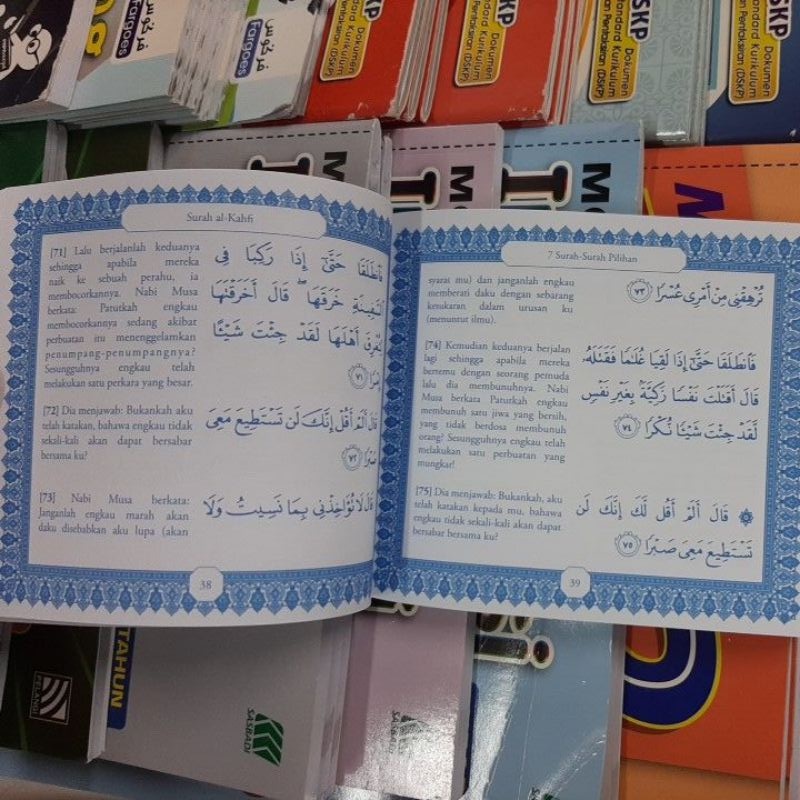 فركوس
Fargoes
فركوس
Fargoes
DSKP
Dokumen
Standard Kurikulum
dan Pentaksiran (DSKP)
DSKP
Dokumen
Standard Kurikulum
dan Pentaksiran (DSKP)
DSKP
Dokumen
Standard Kurikulum
dan Pentaksiran (DSKP)
DSKP
Dokumen
Standard Kurikulum
dan Pentaksiran (DSKP)
Surah al-Kahfi
[71] Lalu berjalanlah keduanya
sehingga apabila mereka
naik ke sebuah perahu, ia
membocorkannya. Nabi Musa
berkata: Patutkah engkau
membocorkannya sedang akibat
perbuatan itu menenggelamkan
penumpang-penumpangnya?
Sesungguhnya engkau telah
melakukan satu perkara yang besar.
فَٱنطَلَقَا حَتَّىٰٓ إِذَا رَكِبَا فِى
ٱلسَّفِينَةِ خَرَقَهَا ۖ قَالَ أَخَرَقْتَهَا
لِتُغْرِقَ أَهْلَهَا لَقَدْ جِئْتَ شَيْـًٔا
إِمْرًا ٧١
[72] Dia menjawab: Bukankah aku
telah katakan, bahawa engkau tidak
sekali-kali akan dapat bersabar
bersama ku?
قَالَ أَلَمْ أَقُلْ إِنَّكَ لَن تَسْتَطِيعَ مَعِىَ
صَبْرًا ٧٢
[73] Nabi Musa berkata:
Janganlah engkau marah akan
daku disebabkan aku lupa (akan
قَالَ لَا تُؤَاخِذْنِى بِمَا نَسِيتُ وَلَا
38
7 Surah-Surah Pilihan
syaras mu) dan janganlah engkau
memberati daku dengan sebarang
kesukaran dalam urusan ku
(menuntut ilmu).
تُرْهِقْنِى مِنْ أَمْرِى عُسْرًا ٧٣
[74] Kemudian keduanya berjalan
lagi sehingga apabila mereka
bertemu dengan seorang pemuda
lalu dia membunuhnya. Nabi
Musa berkata Patutkah engkau
membunuh satu jiwa yang bersih,
yang tidak berdosa membunuh
orang? Sesungguhnya engkau telah
melakukan satu perbuatan yang
mungkar!
فَٱنطَلَقَا حَتَّىٰٓ إِذَا لَقِيَا غُلَٰمًا فَقَتَلَهُۥ
قَالَ أَقَتَلْتَ نَفْسًا زَكِيَّةًۢ بِغَيْرِ نَفْسٍ
لَّقَدْ جِئْتَ شَيْـًٔا نُّكْرًا ٧٤
[75] Dia menjawab: Bukankah, aku
telah katakan kepada mu, bahawa
engkau tidak sekali-kali akan dapat
bersabar bersama ku?
۞ قَالَ أَلَمْ أَقُل لَّكَ إِنَّكَ لَن
تَسْتَطِيعَ مَعِىَ صَبْرًا ٧٥
39
PELANGI
TAHUN
SASBADI
SASBADI